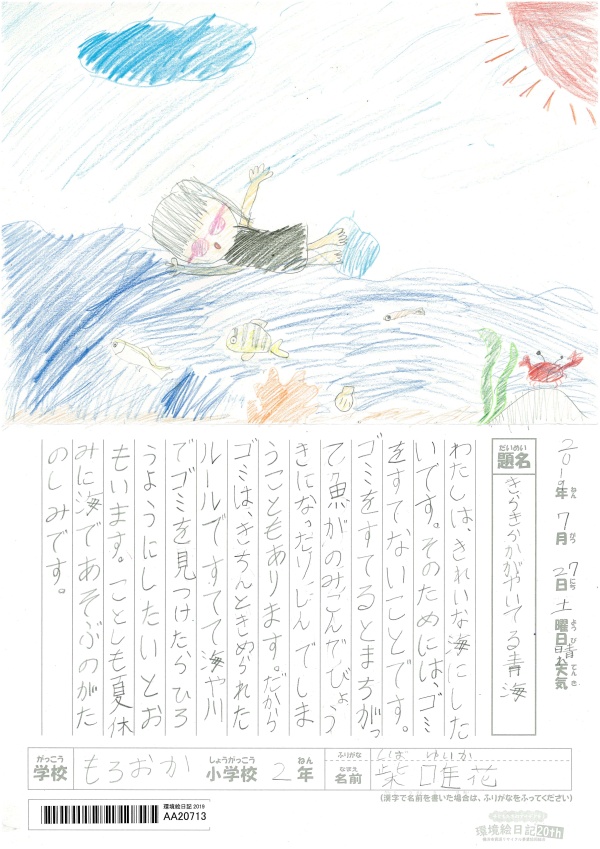 2019年 7月 27日 土曜日 天気 晴
ねん がつ にち ようび てんき
だいめい
題名 きらきらかがやいてる青海
わたしは、きれいな海にした
いです。そのためには、ゴミ
をすてないことです。
ゴミをすてるとまちがっ
て魚がのみこんでびょう
きになったりしんでしま
うこともあります。だから
ゴミは、きちんときめられた
ルールですてて海や川
でゴミを見つけたらひろ
うようにしたいとお
もいます。ことしも夏休
みに海であそぶのがた
のしみです。
がっこう しょうがっこう ねん
学校 もろおか 小学校 2年
ふりがな しば ゆいか
なまえ
名前 柴 唯花
(漢字で名前を書いた場合は、ふりがなをふってください)
環境絵日記 2019
AA20713
環境絵日記20th